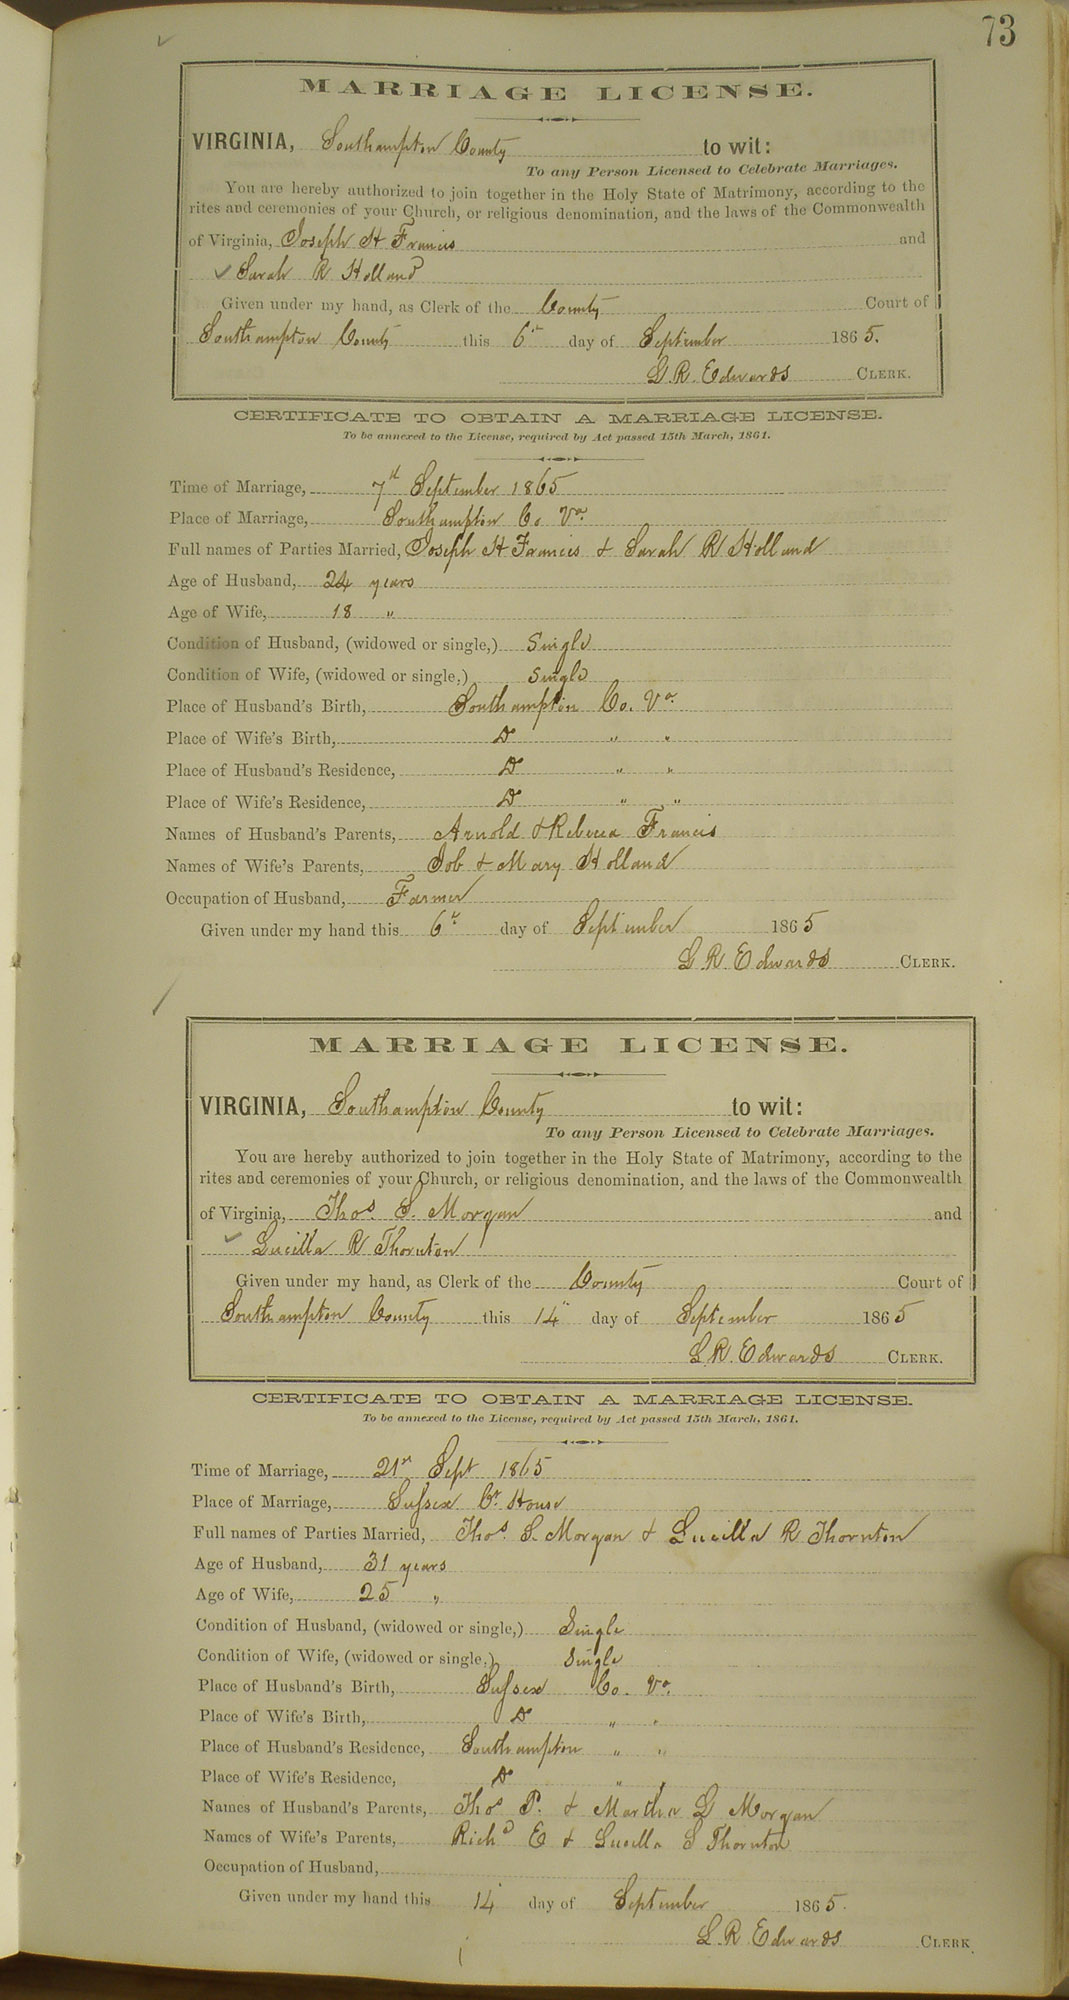 73
MARRIAGE LICENSE.
VIRGINIA, Southampton County to wit:
To any Person Licensed to Celebrate Marriages.
You are hereby authorized to join together in the Holy State of Matrimony, according to the
rites and ceremonies of your Church, or religious denomination, and the laws of the Commonwealth
of Virginia, Joseph H Francis and
Sarah R Holland
Given under my hand, as Clerk of the County Court of
Southampton County this 6th day of September 1865.
L R. Edwards CLERK.
CERTIFICATE TO OBTAIN A MARRIAGE LICENSE.
To be annexed to the License, required by Act passed 15th March, 1861.
Time of Marriage, 7th September 1865
Place of Marriage, Southampton Co. Va.
Full names of Parties Married, Joseph H Francis & Sarah R Holland
Age of Husband, 24 years
Age of Wife, 18 "
Condition of Husband, (widowed or single,) Single
Condition of Wife, (widowed or single,) Single
Place of Husband's Birth, Southampton Co. Va.
Place of Wife's Birth, Do " "
Place of Husband's Residence, Do " "
Place of Wife's Residence, Do " "
Names of Husband's Parents, Arnold & Rebecca Francis
Names of Wife's Parents, Job & Mary Holland
Occupation of Husband, Farmer
Given under my hand this 6th day of September 1865
L R. Edwards CLERK.
MARRIAGE LICENSE.
VIRGINIA, Southampton County to wit:
To any Person Licensed to Celebrate Marriages.
You are hereby authorized to join together in the Holy State of Matrimony, according to the
rites and ceremonies of your Church, or religious denomination, and the laws of the Commonwealth
of Virginia, Thos. S. Morgan and
Lucilla R Thornton
Given under my hand, as Clerk of the County Court of
Southampton County this 14" day of September 1865
L. R. Edwards CLERK.
CERTIFICATE TO OBTAIN A MARRIAGE LICENSE.
To be annexed to the License, required by Act passed 15th March, 1861.
Time of Marriage, 21st Sept 1865
Place of Marriage, Sussex Ct. House
Full names of Parties Married, Thos. S. Morgan & Lucilla R Thornton
Age of Husband, 31 years
Age of Wife, 25 "
Condition of Husband, (widowed or single,) Single
Condition of Wife, (widowed or single,) Single
Place of Husband's Birth, Sussex Co. Va.
Place of Wife's Birth, Do " "
Place of Husband's Residence, Southampton " "
Place of Wife's Residence, Do " "
Names of Husband's Parents, Thos P. & Martha G Morgan
Names of Wife's Parents, Richd E & Lucilla S Thornton
Occupation of Husband,
Given under my hand this 14 day of September 1865.
L. R Edwards CLERK